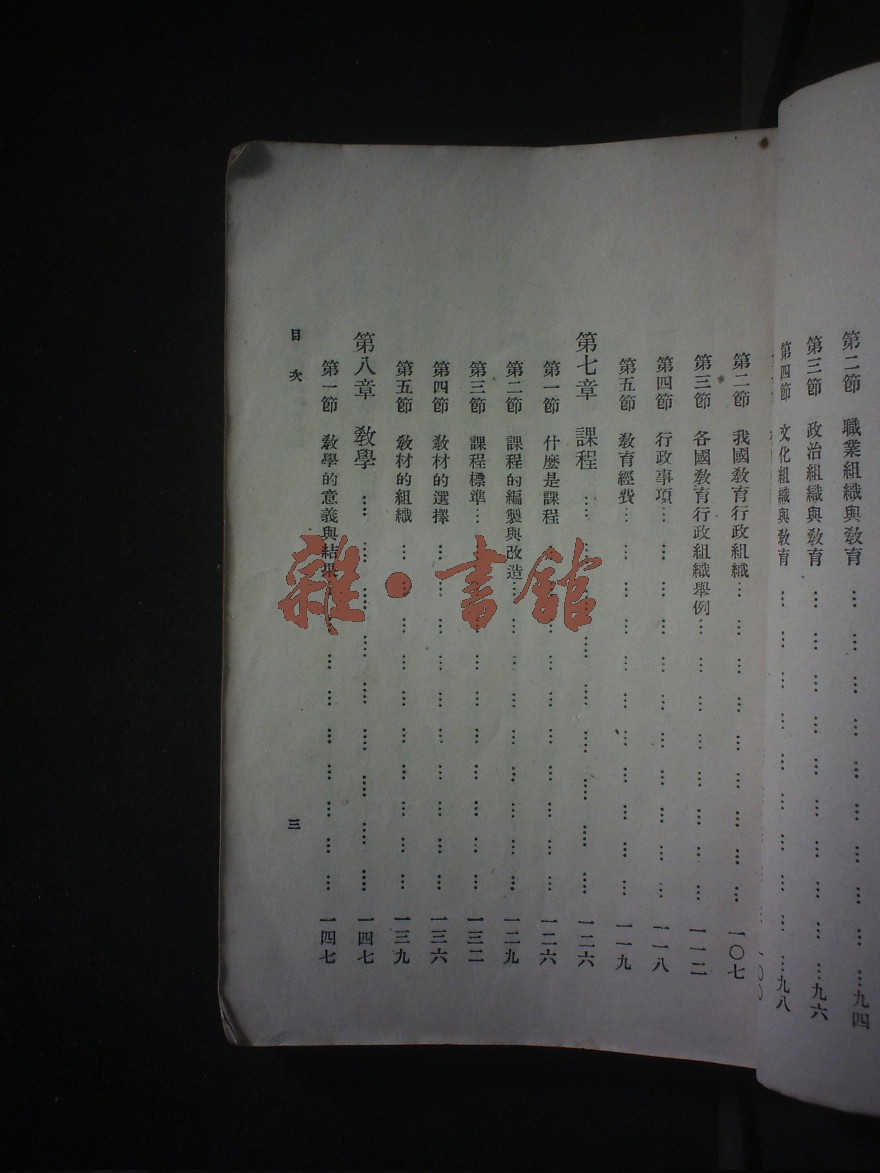 第二節 職業組織與敎育…………………………九四
第三節 政治組織與敎育…………………………九六
第四節 文化組織與敎育…………………………九八
一〇〇
第二節 我國敎育行政組織…………………………一〇七
第三節 各國敎育行政組織舉例…………………………一一二
第四節 行政事項…………………………一一八
第五節 敎育經費…………………………一一九
第七章 課程…………………………一二六
第一節 什麼是課程…………………………一二六
第二節 課程的編製與改造…………………………一二九
第三節 課程標準…………………………一三二
第四節 敎材的選擇…………………………一三六
第五節 敎材的組織…………………………一三九
第八章 敎學…………………………一四七
第一節 敎學的意義與結果…………………………一四七
目次 三
雜·書館